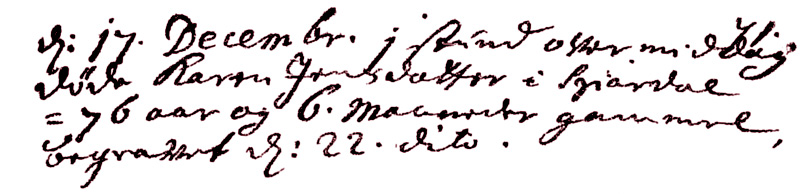 d: 17. Decembr. j stund over midDag
døde Karen Jensdatter i
= 76 aar og 6. Maaneder gammel,
begravet d: 22. dito.